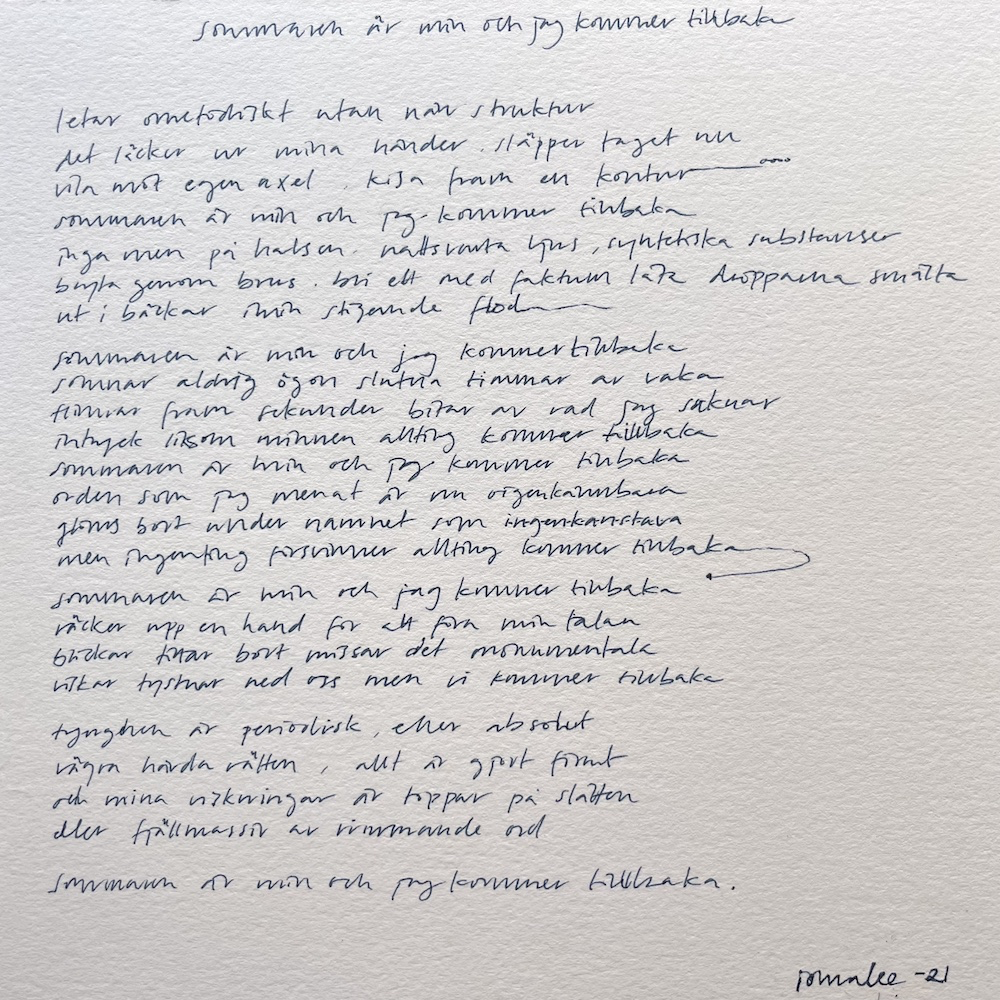 sommaren är min och jag kommer tillbaka
letar ometodiskt utan när struktur
det läcker ur mina händer. släpper taget nu
vila mot egen axel. kisa fram en kontur
sommaren är min och jag kommer tillbaka
inga men på halsen. nattsvarta ljus, syntetiska substanser
bryta genom brus. bli ett med faktum låta dropparna smälta
ut i bäckar i min stigande flod
sommaren är min och jag kommer tillbaka
somnar aldrig ögon slutna timmar av vaka
timrar fram sekunder bitar av vad jag saknar
intryck liksom minnen allting kommer tillbaka
sommaren är min och jag kommer tillbaka
orden som jag menat är nu oigenkännbara
glöms bort under namnet som ingen kan stava
men ingenting försvinner allting kommer tillbaka
sommaren är min och jag kommer tillbaka
räcker upp en hand för att föra min talan
blickar tittar bort missar det monumentala
viskar tystnar ned oss men vi kommer tillbaka
tyngden är periodisk, eller absolut
vägra hårda rätten, allt är gjort förut
och mina vikningar är toppar på slätten
eller fjällmassiv av rimmande ord
sommaren är min och jag kommer tillbaka.
-21